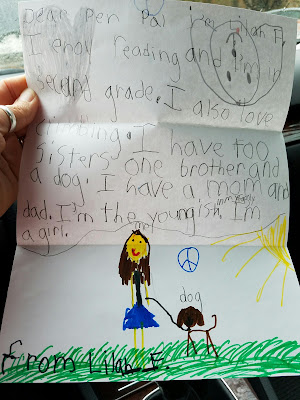 Dear Pen Pal I'm Lilah F.
I enoy reading and I'm in
second grade. I also love
climbing. I have too
sisters one brother and
a dog. I have a mom and
dad. I'm the youngish in my family I'm
a girl.
me
dog
From Lilah F.